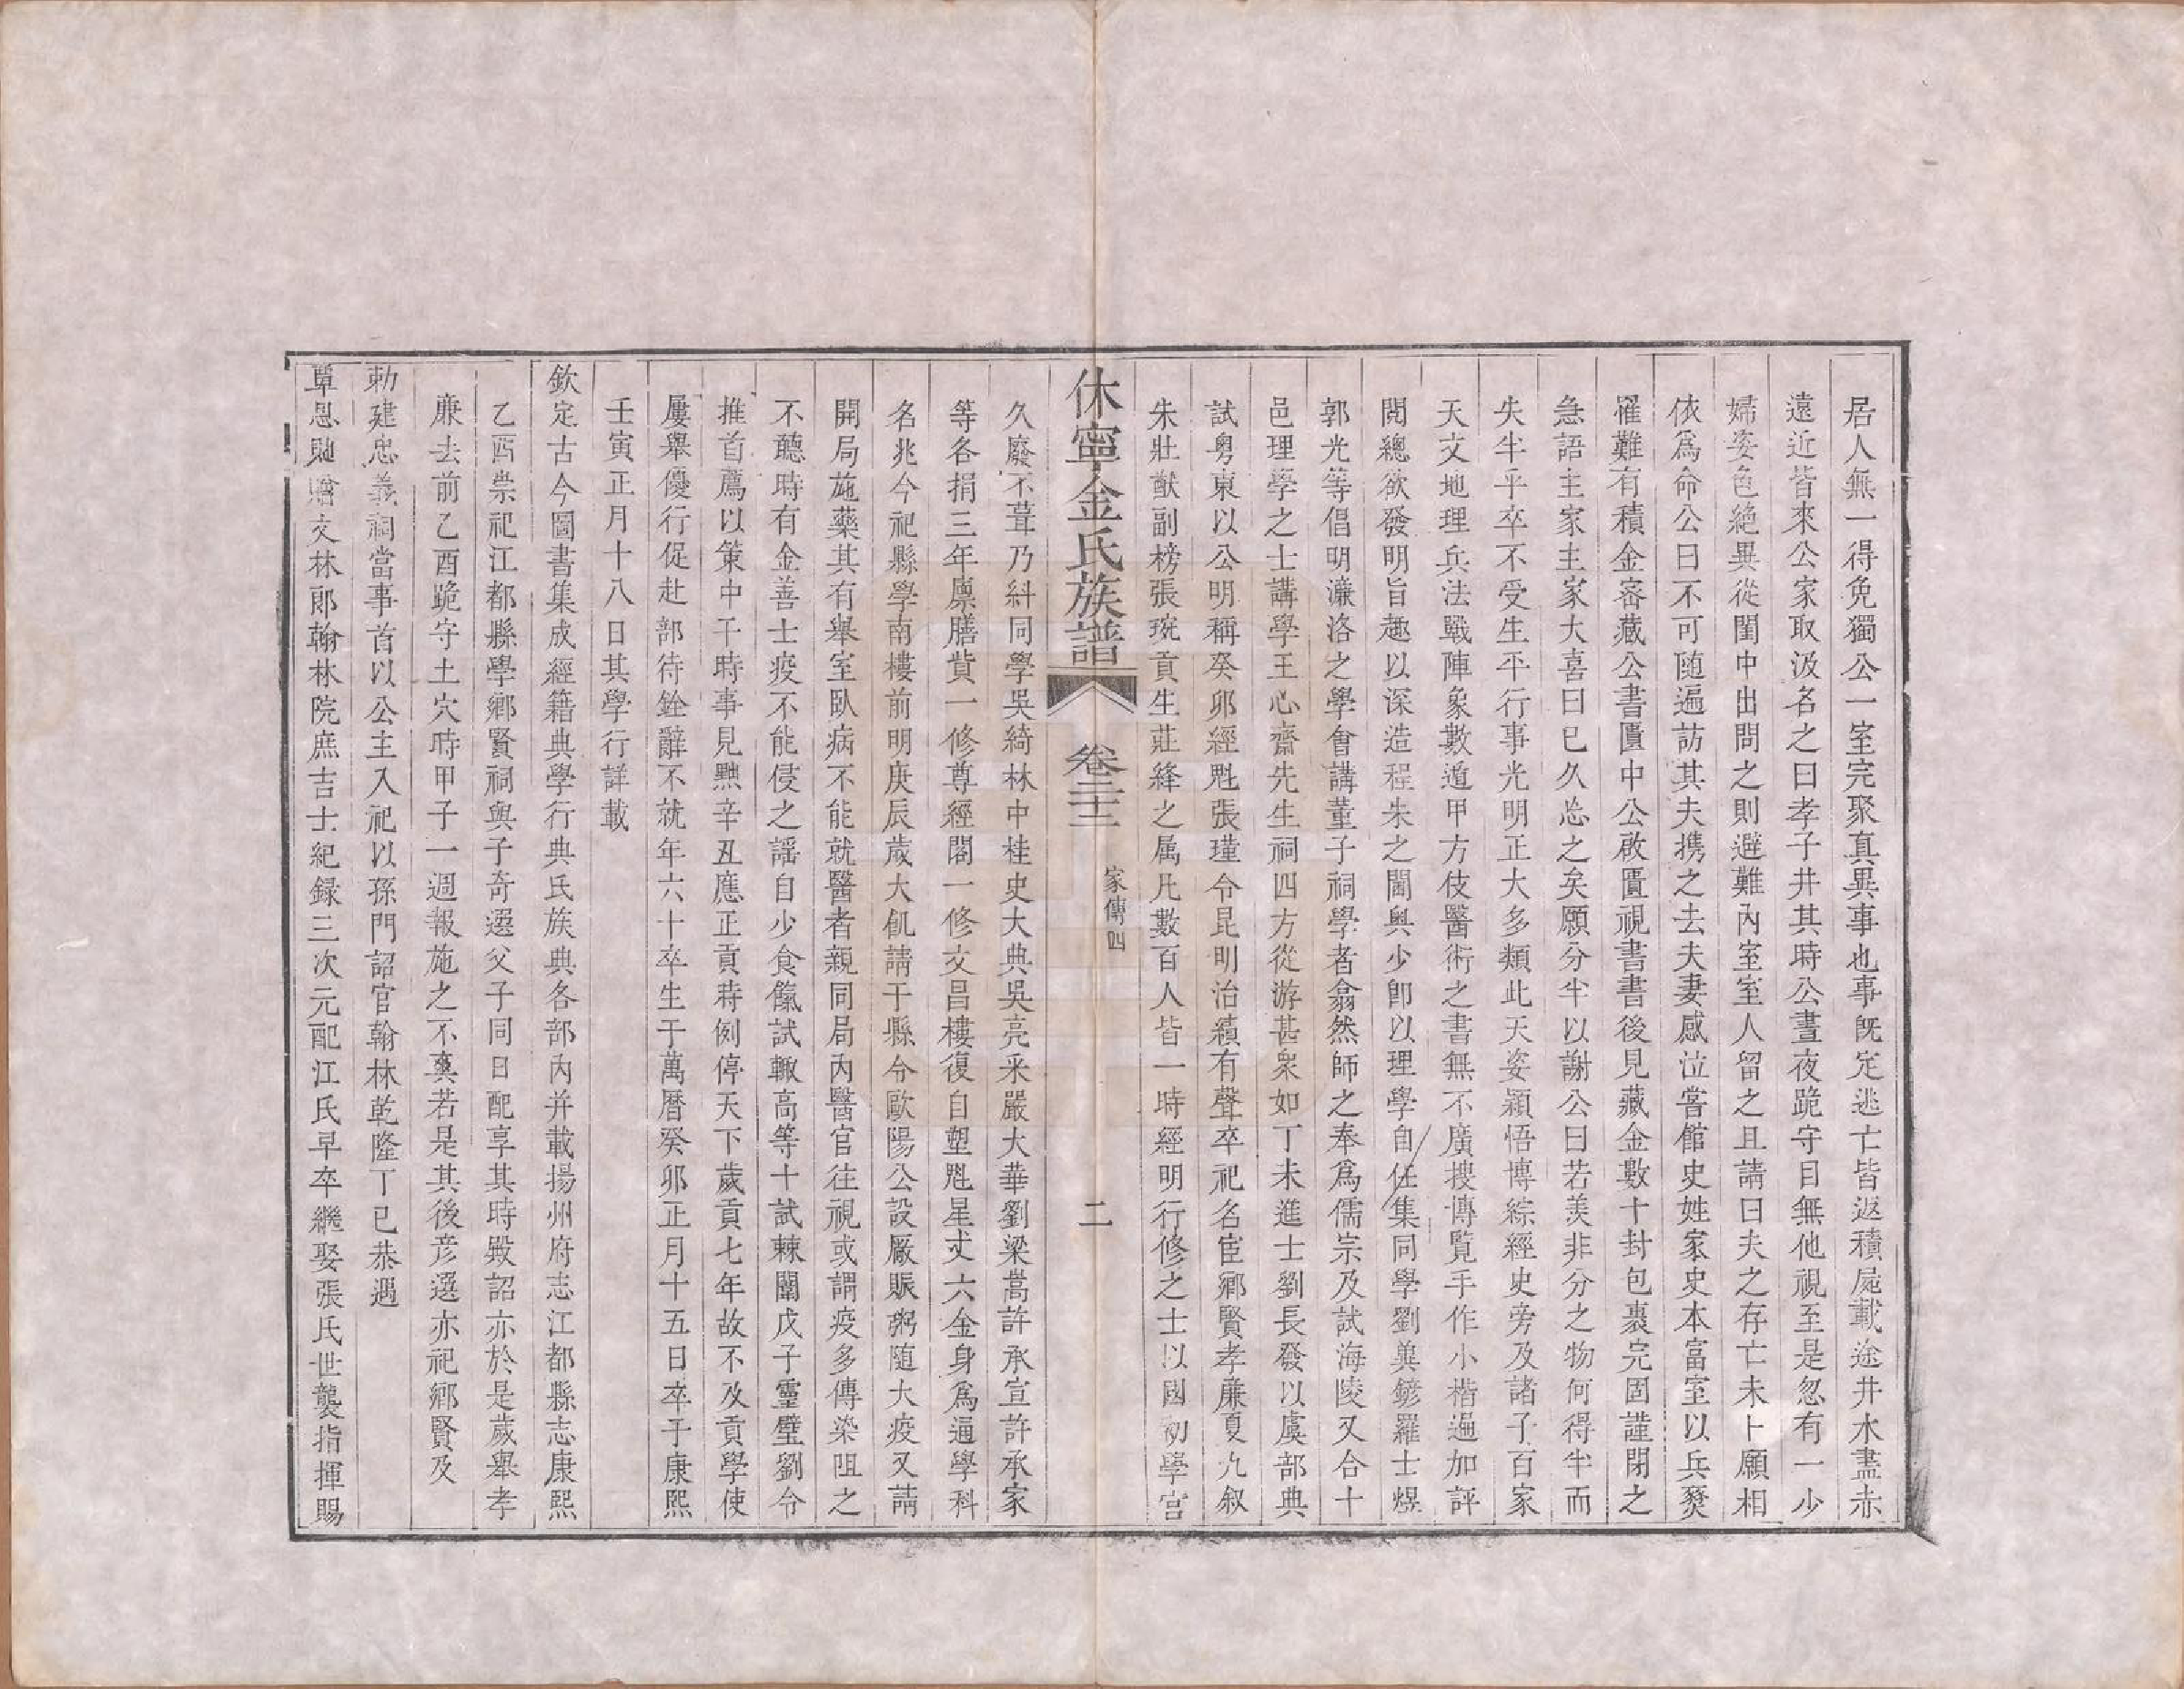 居人無一得免獨公一室完聚真異事也事旣定逃亡皆返積屍載途井水盡赤
遠近皆來公家取汲名之曰孝子井其時公晝夜跪守目無他視至是忽有一少
婦姿色絕異從閨中出問之則避難內室室人留之且請曰夫之存亡未卜願相
依爲命公曰不可随遍訪其夫携之去夫妻感泣嘗館史姓家史本富室以兵燹
罹難有積金密藏公書匱中公啟匱視書書後見藏金數十封包裹完固謹閉之
急語主家主家大喜曰已久忘之矣願分半以謝公曰若羙非分之物何得半而
失半乎卒不受生平行事光明正大多類此天姿穎悟博綜經史旁及諸子百家
天文地理兵法戰陣象數遁甲方伎醫術之書無不廣搜博覧手作小楷遍加評
閱總欲發明旨趣以深造程朱之閫奥少卽以理學自任集同學劉㒷鎊羅士煜
郭光等倡明濂洛之學會講董子祠學者翕然師之奉爲儒宗及試海陵又合十
邑理學之士講學王心齋先生祠四方從游甚衆如丁未進士劉長發以虞部典
試粤東以公明稱癸卯經魁張瑾令昆明治績有聲卒祀名宦鄉賢孝廉夏九叙
朱壯猷副榜張琬貢生莊絳之属凡數百人皆一時經明行修之士以國初學宮
休寧金氏族譜 卷二十二 家傳四 二
久廢不葺乃糾同學吳綺林中桂史大典吳亮采嚴大華劉梁嵩許承宣許承家
等各捐三年廪膳貲一修尊經閣一修文昌樓復自塑魁星丈六金身爲通學科
名兆今祀縣學南樓前明庚辰歲大飢請于縣令歐陽公設厰賑粥随大疫又請
開局施藥其有舉室臥病不能就醫者親同局內醫官往視或謂疫多傳染阻之
不聽時有金善士疫不能侵之謡自少食餼試輙高等十試棘闈戊子靈璧劉令
推首薦以策中干時事見黜辛丑應正貢蒔例停天下歲貢七年故不及貢學使
屢舉優行促赴部待銓辭不就年六十卒生于萬曆癸卯正月十五日卒于康熙
壬寅正月十八日其學行詳載
欽定古今圖書集成經籍典學行典氏族典各部內并載揚州府志江都縣志康熙
乙酉崇祀江都縣學鄉賢祠與子奇選父子同日配享其時殿詔亦於是歲舉孝
廉去前乙酉跪守土穴時甲子一週報施之不爽若是其後彦選亦祀鄉賢及
勅建忠義祠當事首以公主入祀以孫門詔官翰林乾隆丁巳恭遇
覃恩貤贈文林郎翰林院庶吉士紀録三次元配江氏早卒繼娶張氏世襲指揮賜